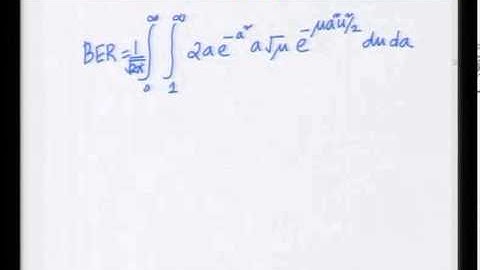 BER = 1/√2π ∫₀^∞ ∫₁^∞ 2a e^{-a²} a√μ e^{-μa²u²/2} du da